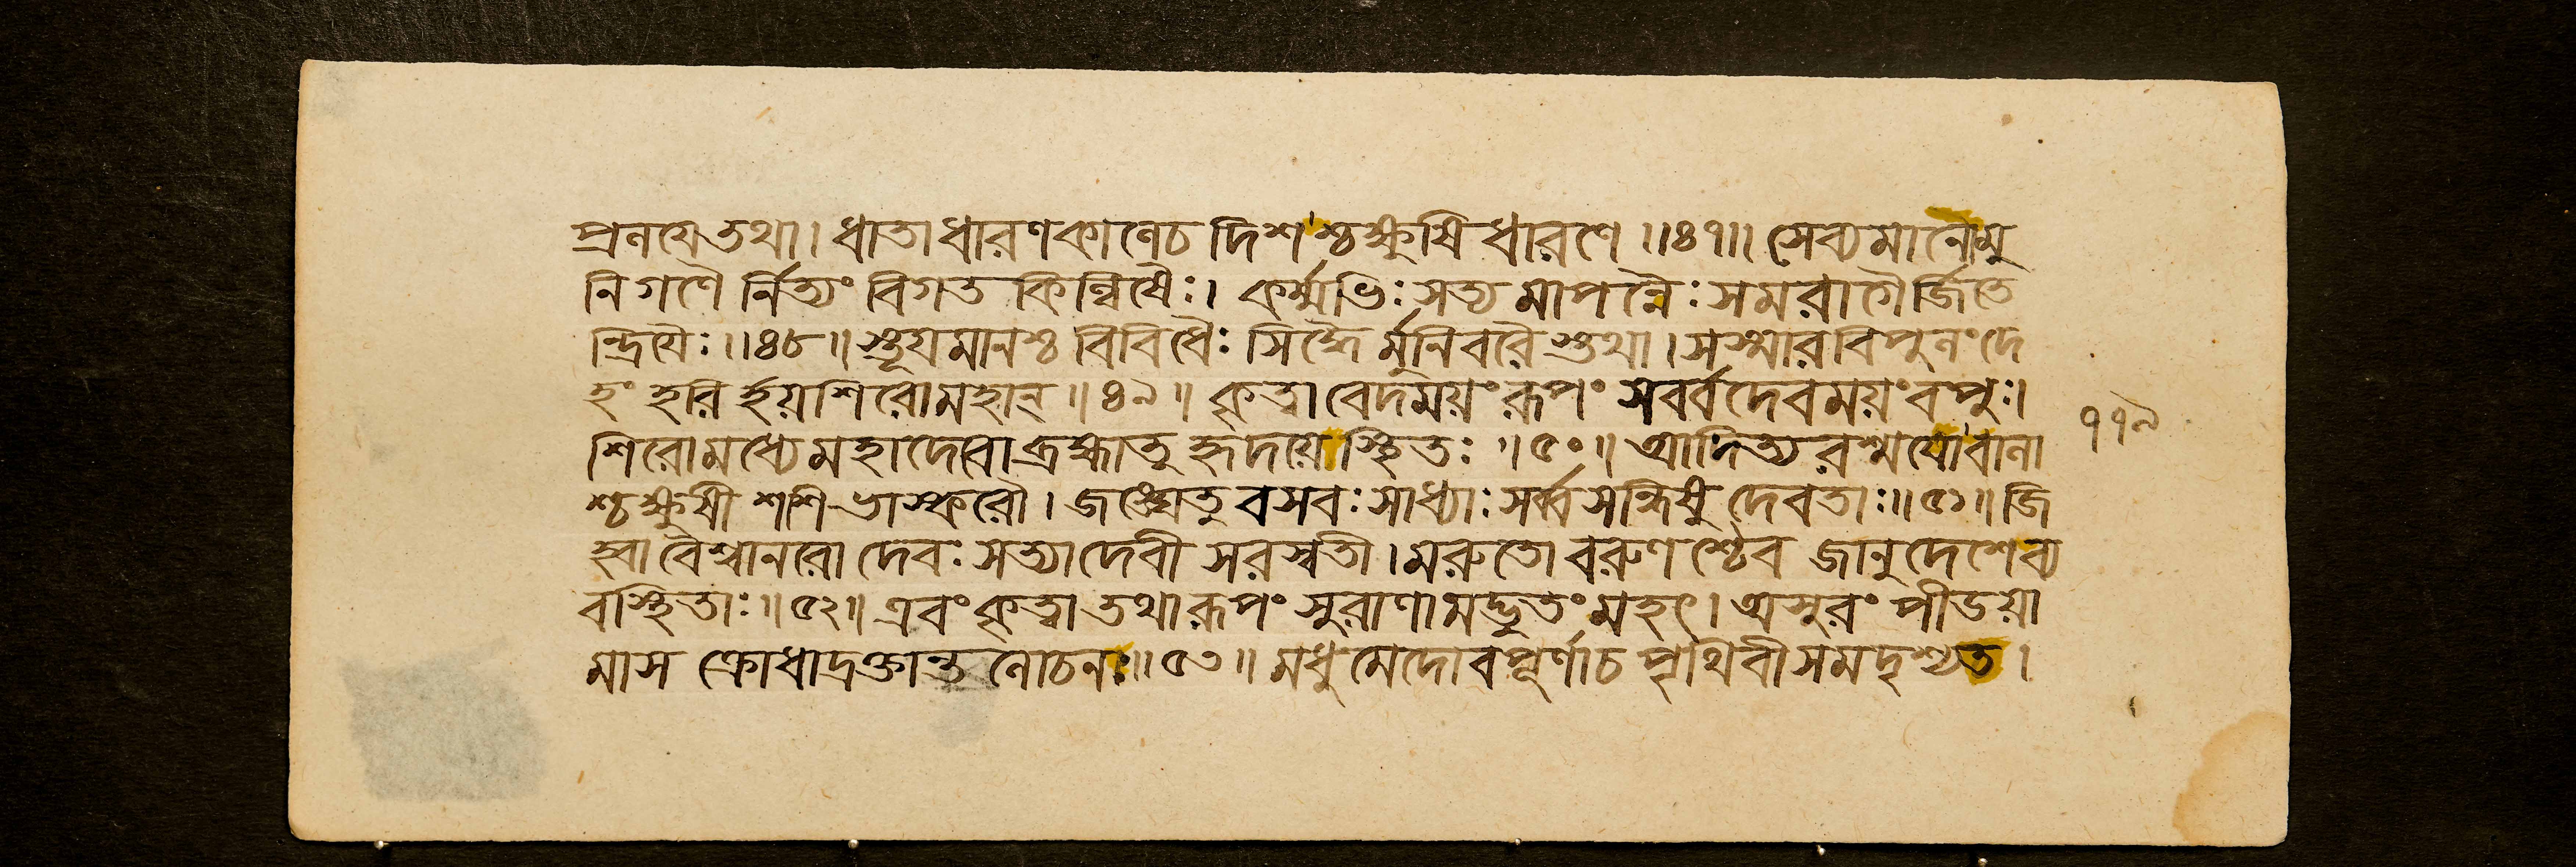 প্রলয়ে তথা। ধাতাধারণকালেচ দিশশ্চক্ষুষি ধারণে ॥৪৭॥ সেব্যমানোমু
নিগণৈ র্নিত্যং বিগত কিল্বিষৈঃ। কর্ম্মভিঃ সত্য মাপন্নৈঃ সমরাগৈর্জিতে
ন্দ্রিয়ৈঃ ॥৪৮॥ স্তূয়মানশ্চ বিবিধৈঃ সিদ্ধৈ র্মুনিবরৈ স্তথা। সস্মার বিপুলং দে
হং হরি র্হয়শিরোমহান্ ॥৪৯॥ কৃত্বা বেদময়ং রূপং সর্ব্বদেবময়ং বপুঃ।
শিরোমধ্যে মহাদেবো ব্রহ্মাতু হৃদয়ে স্থিতঃ ॥৫০॥ আদিত্য রশ্ময়ো বালা
শ্চক্ষুষী শশি-ভাস্করৌ। জঙ্ঘেতু বসবঃ সাধ্যাঃ সর্ব্ব সন্ধিষু দেবতাঃ ॥৫১॥ জি
হ্বা বৈশ্বানরো দেবঃ সত্যাদেবী সরস্বতী। মরুতো বরুণ শ্চৈব জানুদেশে ব্য
বস্থিতাঃ ॥৫২॥ এবং কৃত্বা তথা রূপং সুরাণামদ্ভুতং মহৎ। অসুরং পীডয়া
মাস ক্রোধাদ্রক্তান্ত লোচনঃ ॥৫৩॥ মধুমেদোবপূর্ণাচ পৃথিবী সমদৃশ্যত।
১১৯